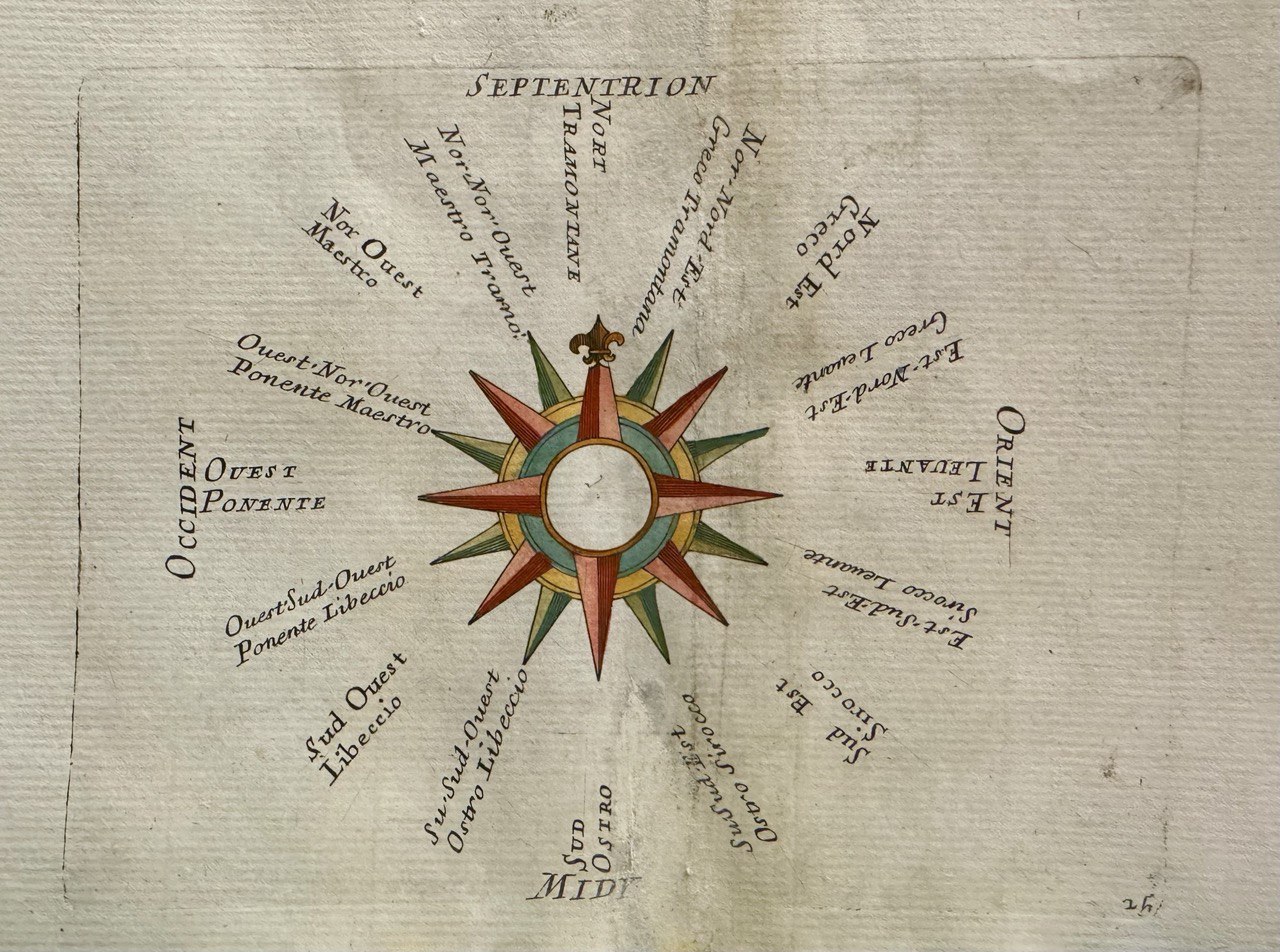 SEPTENTRION
NORT
TRAMONTANE
Nor-Nord-Est
Greco Tramontana
Nord Est
Greco
Est-Nord-Est
Greco Leuante
ORIENT
EST
LEUANTE
Est-Sud-Est
Sirocco Leuante
Sud Est
Sirocco
Su Sud Est
Ostro Sirocco
SUD
OSTRO
MIDY
Su-Sud-Ouest
Ostro Libeccio
Sud Ouest
Libeccio
Ouest Sud-Ouest
Ponente Libeccio
OCCIDENT
OUEST
PONENTE
Ouest-Nor-Ouest
Ponente Maestro
Nor Ouest
Maestro
Nor-Nor-Ouest
Maestro Tramo: